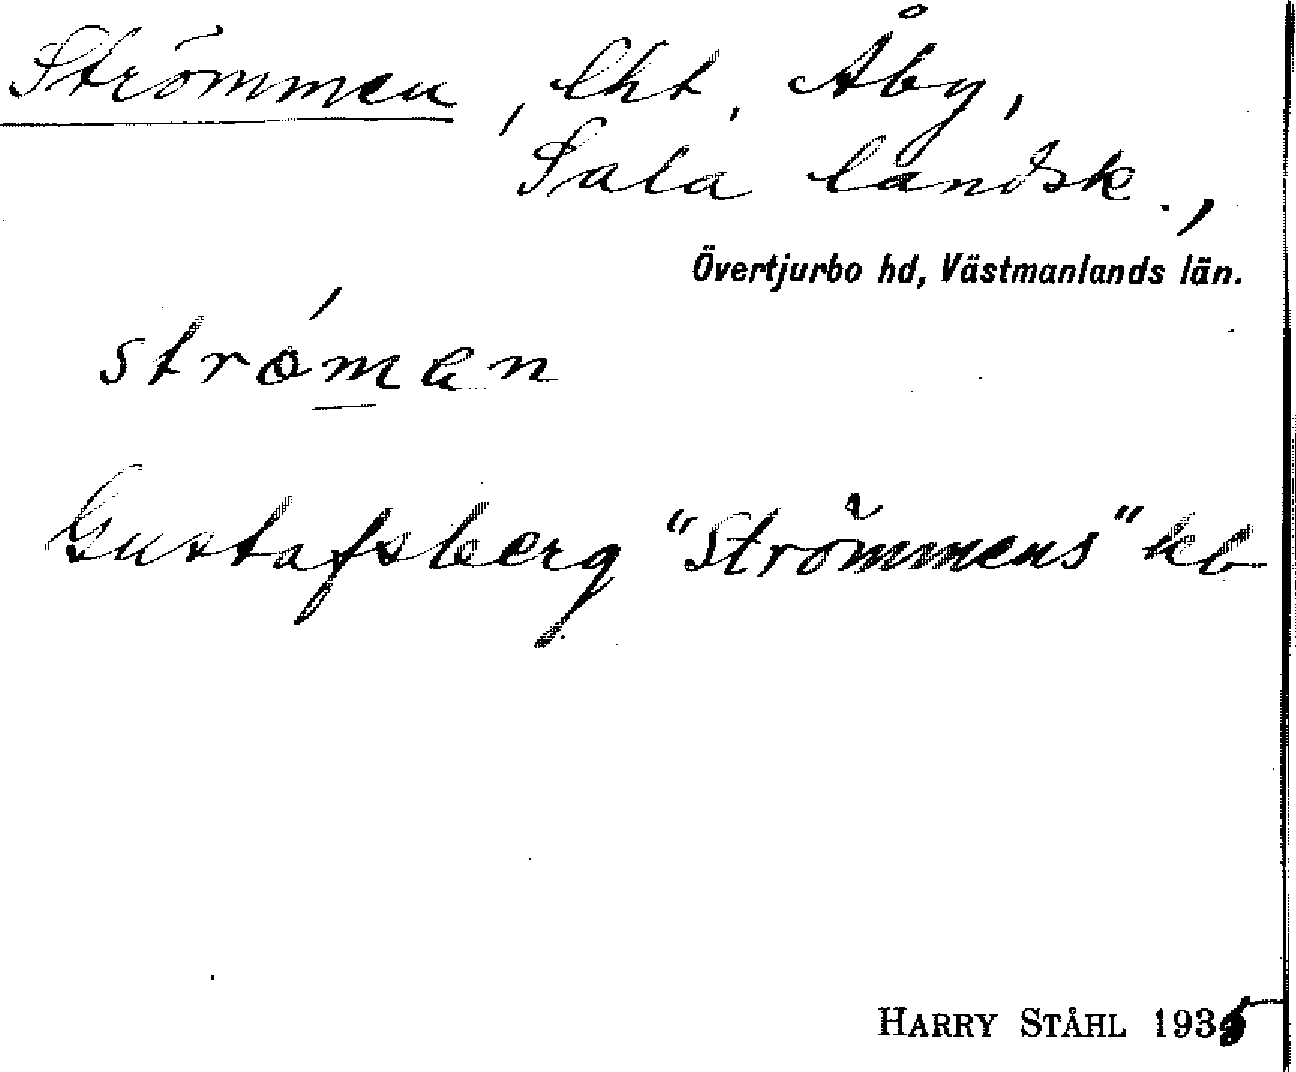 Strömmen, lht, Åby,
Sala landsk.,
Övertjurbo hd, Västmanlands län.
strömen
Gustafsberg "Strömmens" kb
HARRY STÅHL 1935